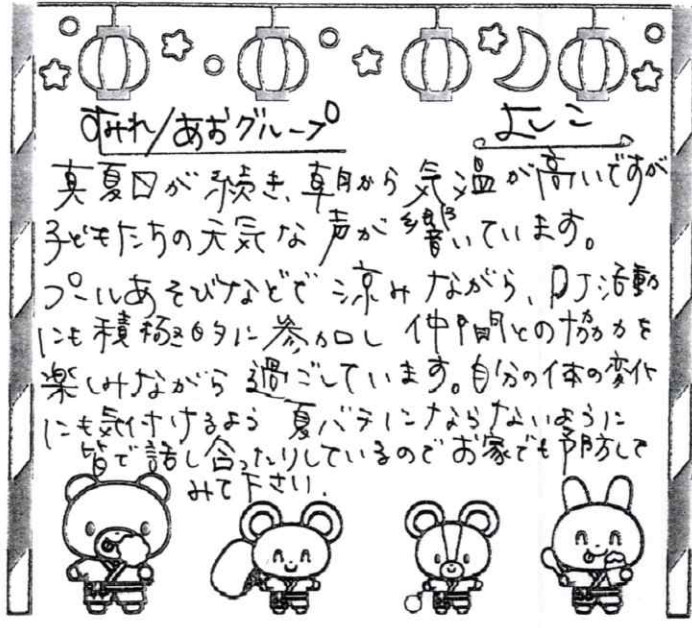 すみれ/あおグループ よしこ
真夏日が続き、朝から気温が高いですが
子どもたちの元気な声が響いています。
プールあそびなどで涼みながら、PJ活動
にも積極的に参加し仲間との協力を
楽しみながら過ごしています。自分の体の変化
にも気付けるよう夏バテにならないように
皆で話し合ったりしているのでお家でも予防して
みて下さい.